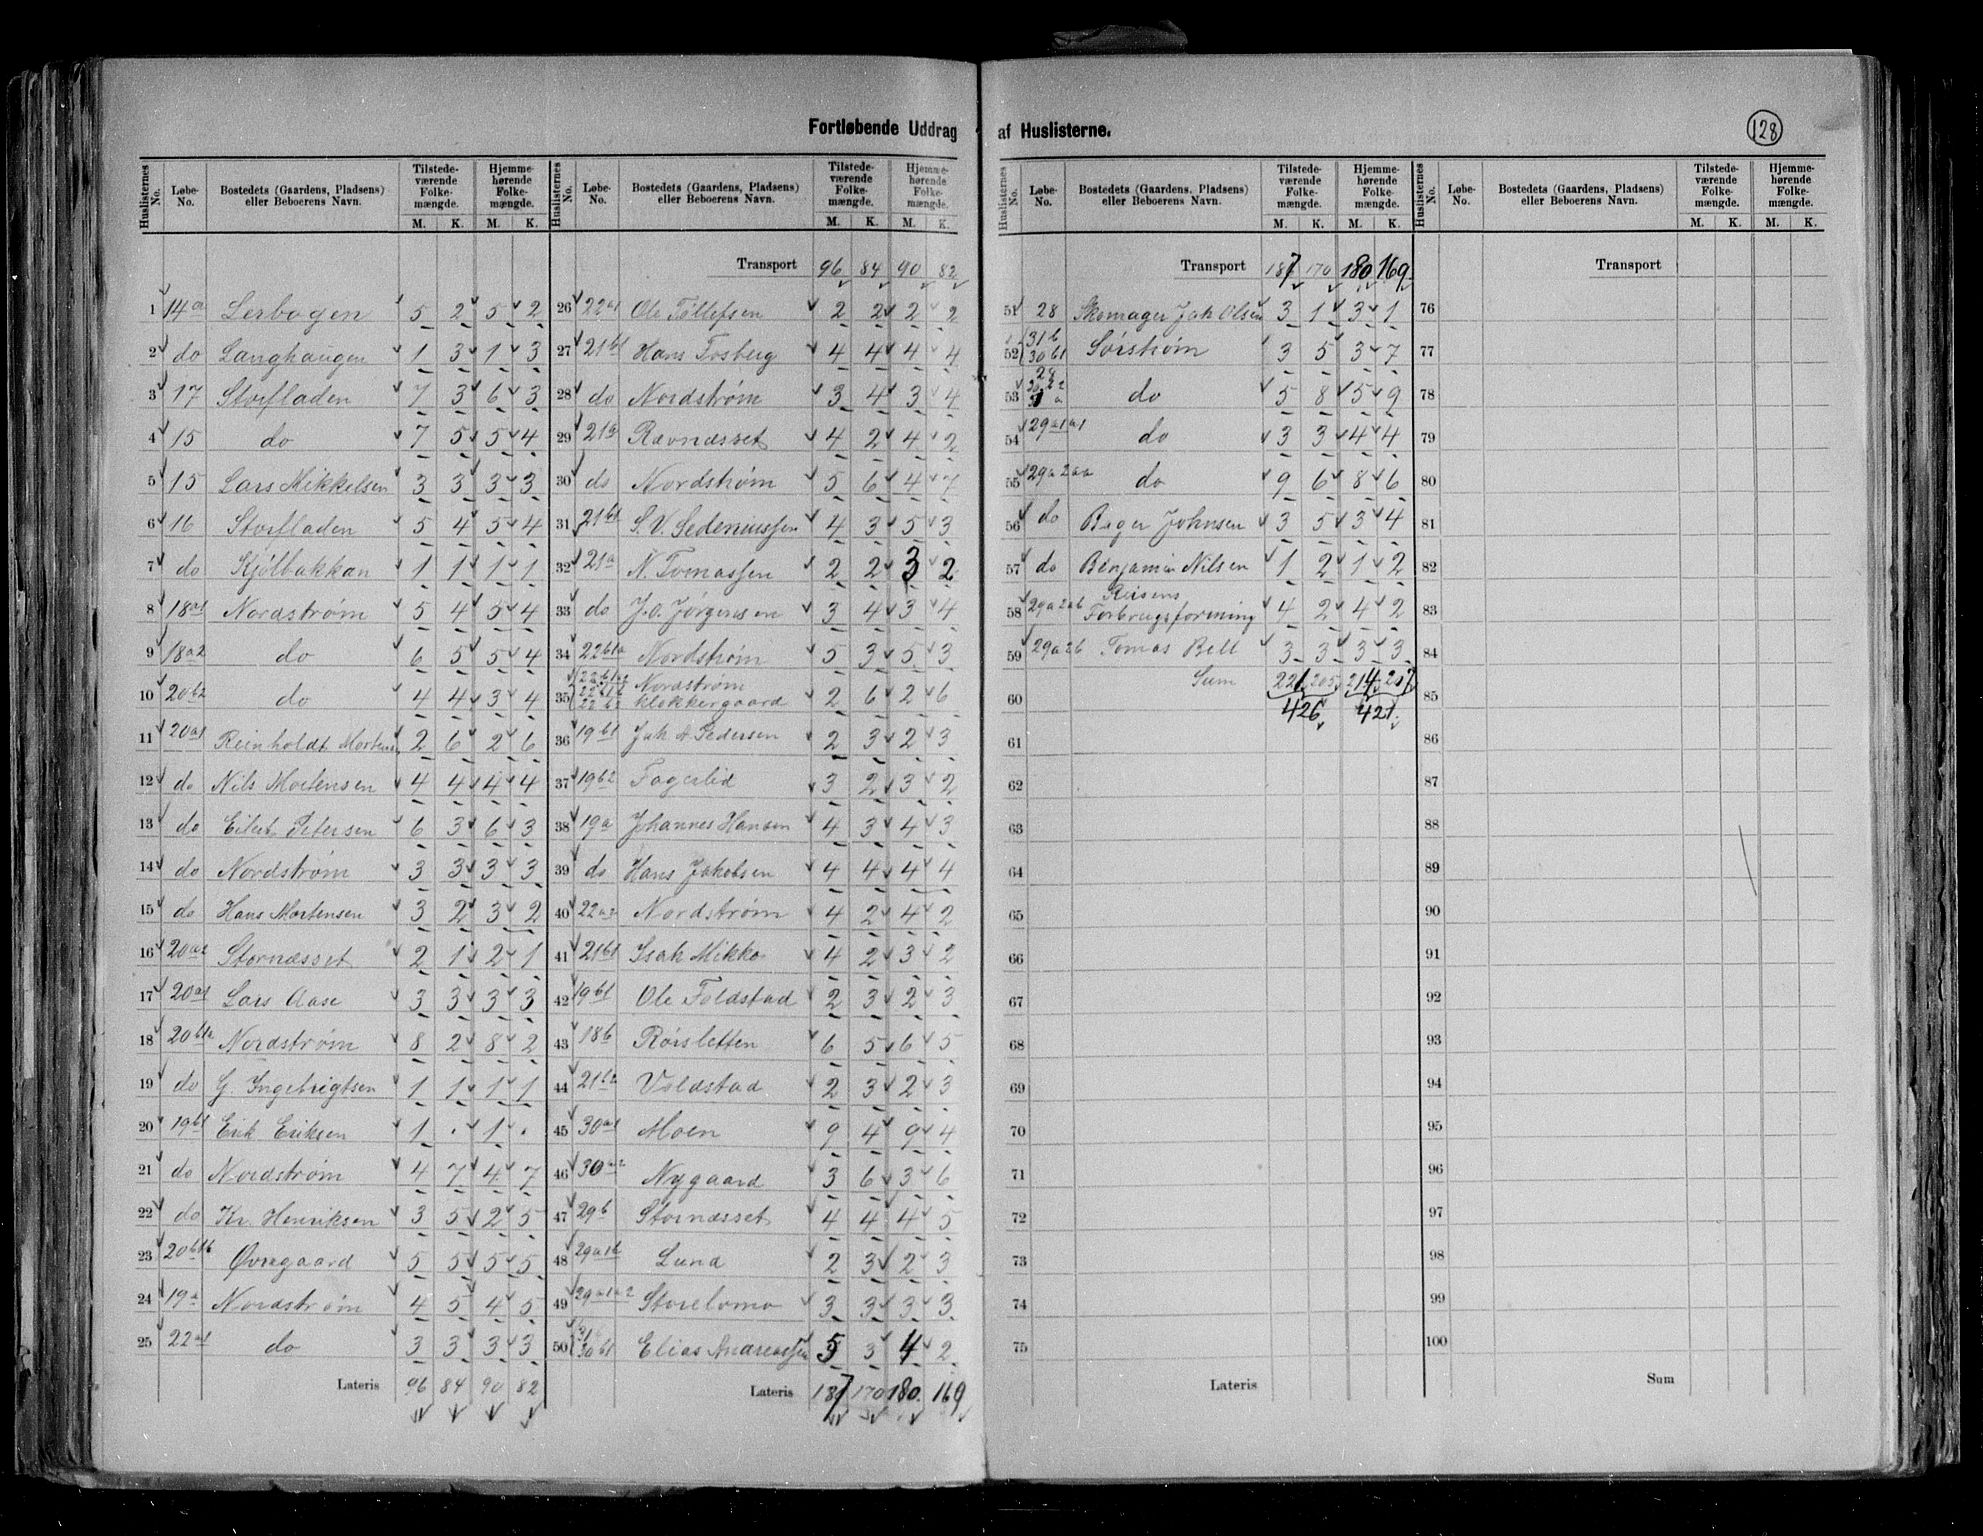 Fortløbende Uddrag af Huslisterne.
128
Huslisternes No. Løbe-No. Bostedets (Gaardens, Pladsens) eller Beboerens Navn. Tilstedeværende Folkemængde. M. K. Hjemmehørende Folkemængde. M. K.
1 14a Lerbogen 5 2 5 2
2 do Langhaugen 1 3 1 3
3 17 Storfladen 7 3 6 3
4 15 do 7 5 5 4
5 15 Lars Mikkelsen 3 3 3 3
6 16 Storfladen 5 4 5 4
7 do Kjølbakkan 1 1 1 1
8 18a1 Nordstrøm 5 4 5 4
9 18a2 do 6 5 5 4
10 20b2 do 4 4 3 4
11 20a1 Reinholdt Mortens 2 6 2 6
12 do Nils Mortensen 4 4 4 4
13 do Eilert Petersen 6 3 6 3
14 do Nordstrøm 3 3 3 3
15 do Hans Mortensen 3 2 3 2
16 20a2 Stornæsset 2 1 2 1
17 20a1 Lars Aase 3 3 3 3
18 20b1a Nordstrøm 8 2 8 2
19 do G. Ingebrigtsen 1 1 1 1
20 19b1 Erik Eriksen 1 . 1 .
21 do Nordstrøm 4 7 4 7
22 do Kr. Henriksen 3 5 2 5
23 20b1b Øvregaard 5 5 5 5
24 19a Nordstrøm 4 5 4 5
25 22a1 do 3 3 3 3
Lateris 96 84 90 82
Huslisternes No. Løbe-No. Bostedets (Gaardens, Pladsens) eller Beboerens Navn. Tilstedeværende Folkemængde. M. K. Hjemmehørende Folkemængde. M. K.
Transport 96 84 90 82
26 22a1 Ole Tollefsen 2 2 2 2
27 21b1 Hans Fosberg 4 4 4 4
28 do Nordstrøm 3 4 3 4
29 21a Rævnæsset 4 2 4 2
30 do Nordstrøm 5 6 4 7
31 21b1 S. V. Sedeniussen 4 3 5 3
32 21a N. Tomassen 2 2 3 2
33 do J. O. Jørgensen 3 4 3 4
34 22b1a Nordstrøm 5 3 5 3
35 22b1a2 22b1b 22b2 Nordstrøm klokkergaard 2 6 2 6
36 19b1 Joh A Pedersen 2 3 2 3
37 19b2 Fagerlid 3 2 3 2
38 19a Johannes Hansen 4 3 4 3
39 do Hans Jakobsen 4 4 4 4
40 22a2 Nordstrøm 4 2 4 2
41 21b1 Isak Mikko 4 2 3 2
42 19b1 Ole Foldstad 2 3 2 3
43 18b Rørsletten 6 5 6 5
44 21b2 Voldstad 2 3 2 3
45 30a1 Moen 9 4 9 4
46 30a2 Nygaard 3 6 3 6
47 29b Stornæsset 4 4 4 5
48 29a1b Lund 2 3 2 3
49 29a1a2 Storelomo 3 3 3 3
50 31 30b1 Elias Andreassen 5 3 4 2
Lateris 187 170 180 169
Huslisternes No. Løbe-No. Bostedets (Gaardens, Pladsens) eller Beboerens Navn. Tilstedeværende Folkemængde. M. K. Hjemmehørende Folkemængde. M. K.
Transport 187 170 180 169
51 28 Skomager Joh Olsen 3 1 3 1
52 31b 30b1 Sørstrøm 3 5 3 7
53 do 5 8 5 9
54 29a1a1 do 3 3 4 4
55 29a2aa do 9 6 8 6
56 do Birger Johnsen 3 5 3 4
57 do Benjamin Nilsen 1 2 1 2
58 29a2ab Reisens Forbrugsforening 4 2 4 2
59 29a2b Tomas Bell 3 3 3 3
60 Sum 221 205 214 207
426 421
61
62
63
64
65
66
67
68
69
70
71
72
73
74
75
Lateris
Huslisternes No. Løbe-No. Bostedets (Gaardens, Pladsens) eller Beboerens Navn. Tilstedeværende Folkemængde. M. K. Hjemmehørende Folkemængde. M. K.
Transport
76
77
78
79
80
81
82
83
84
85
86
87
88
89
90
91
92
93
94
95
96
97
98
99
100
Sum